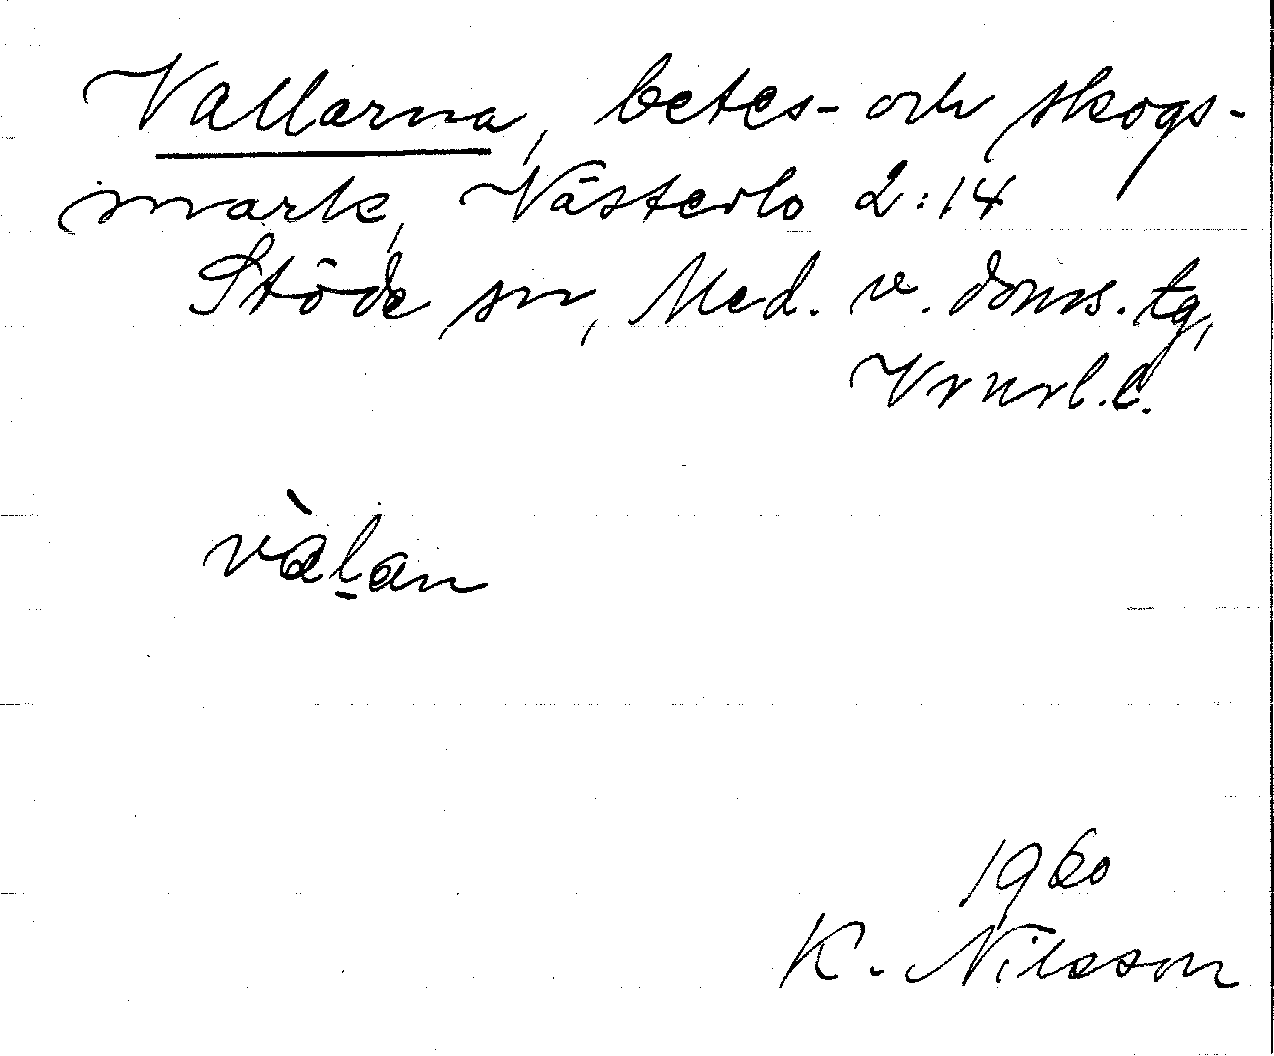 Vallarna, betes- och skogs-
mark, Västerlo 2:14
Stöde sn, Med. v. doms. tg,
Vrnrl.l.
vàl̠an
1960
K. Nilsson